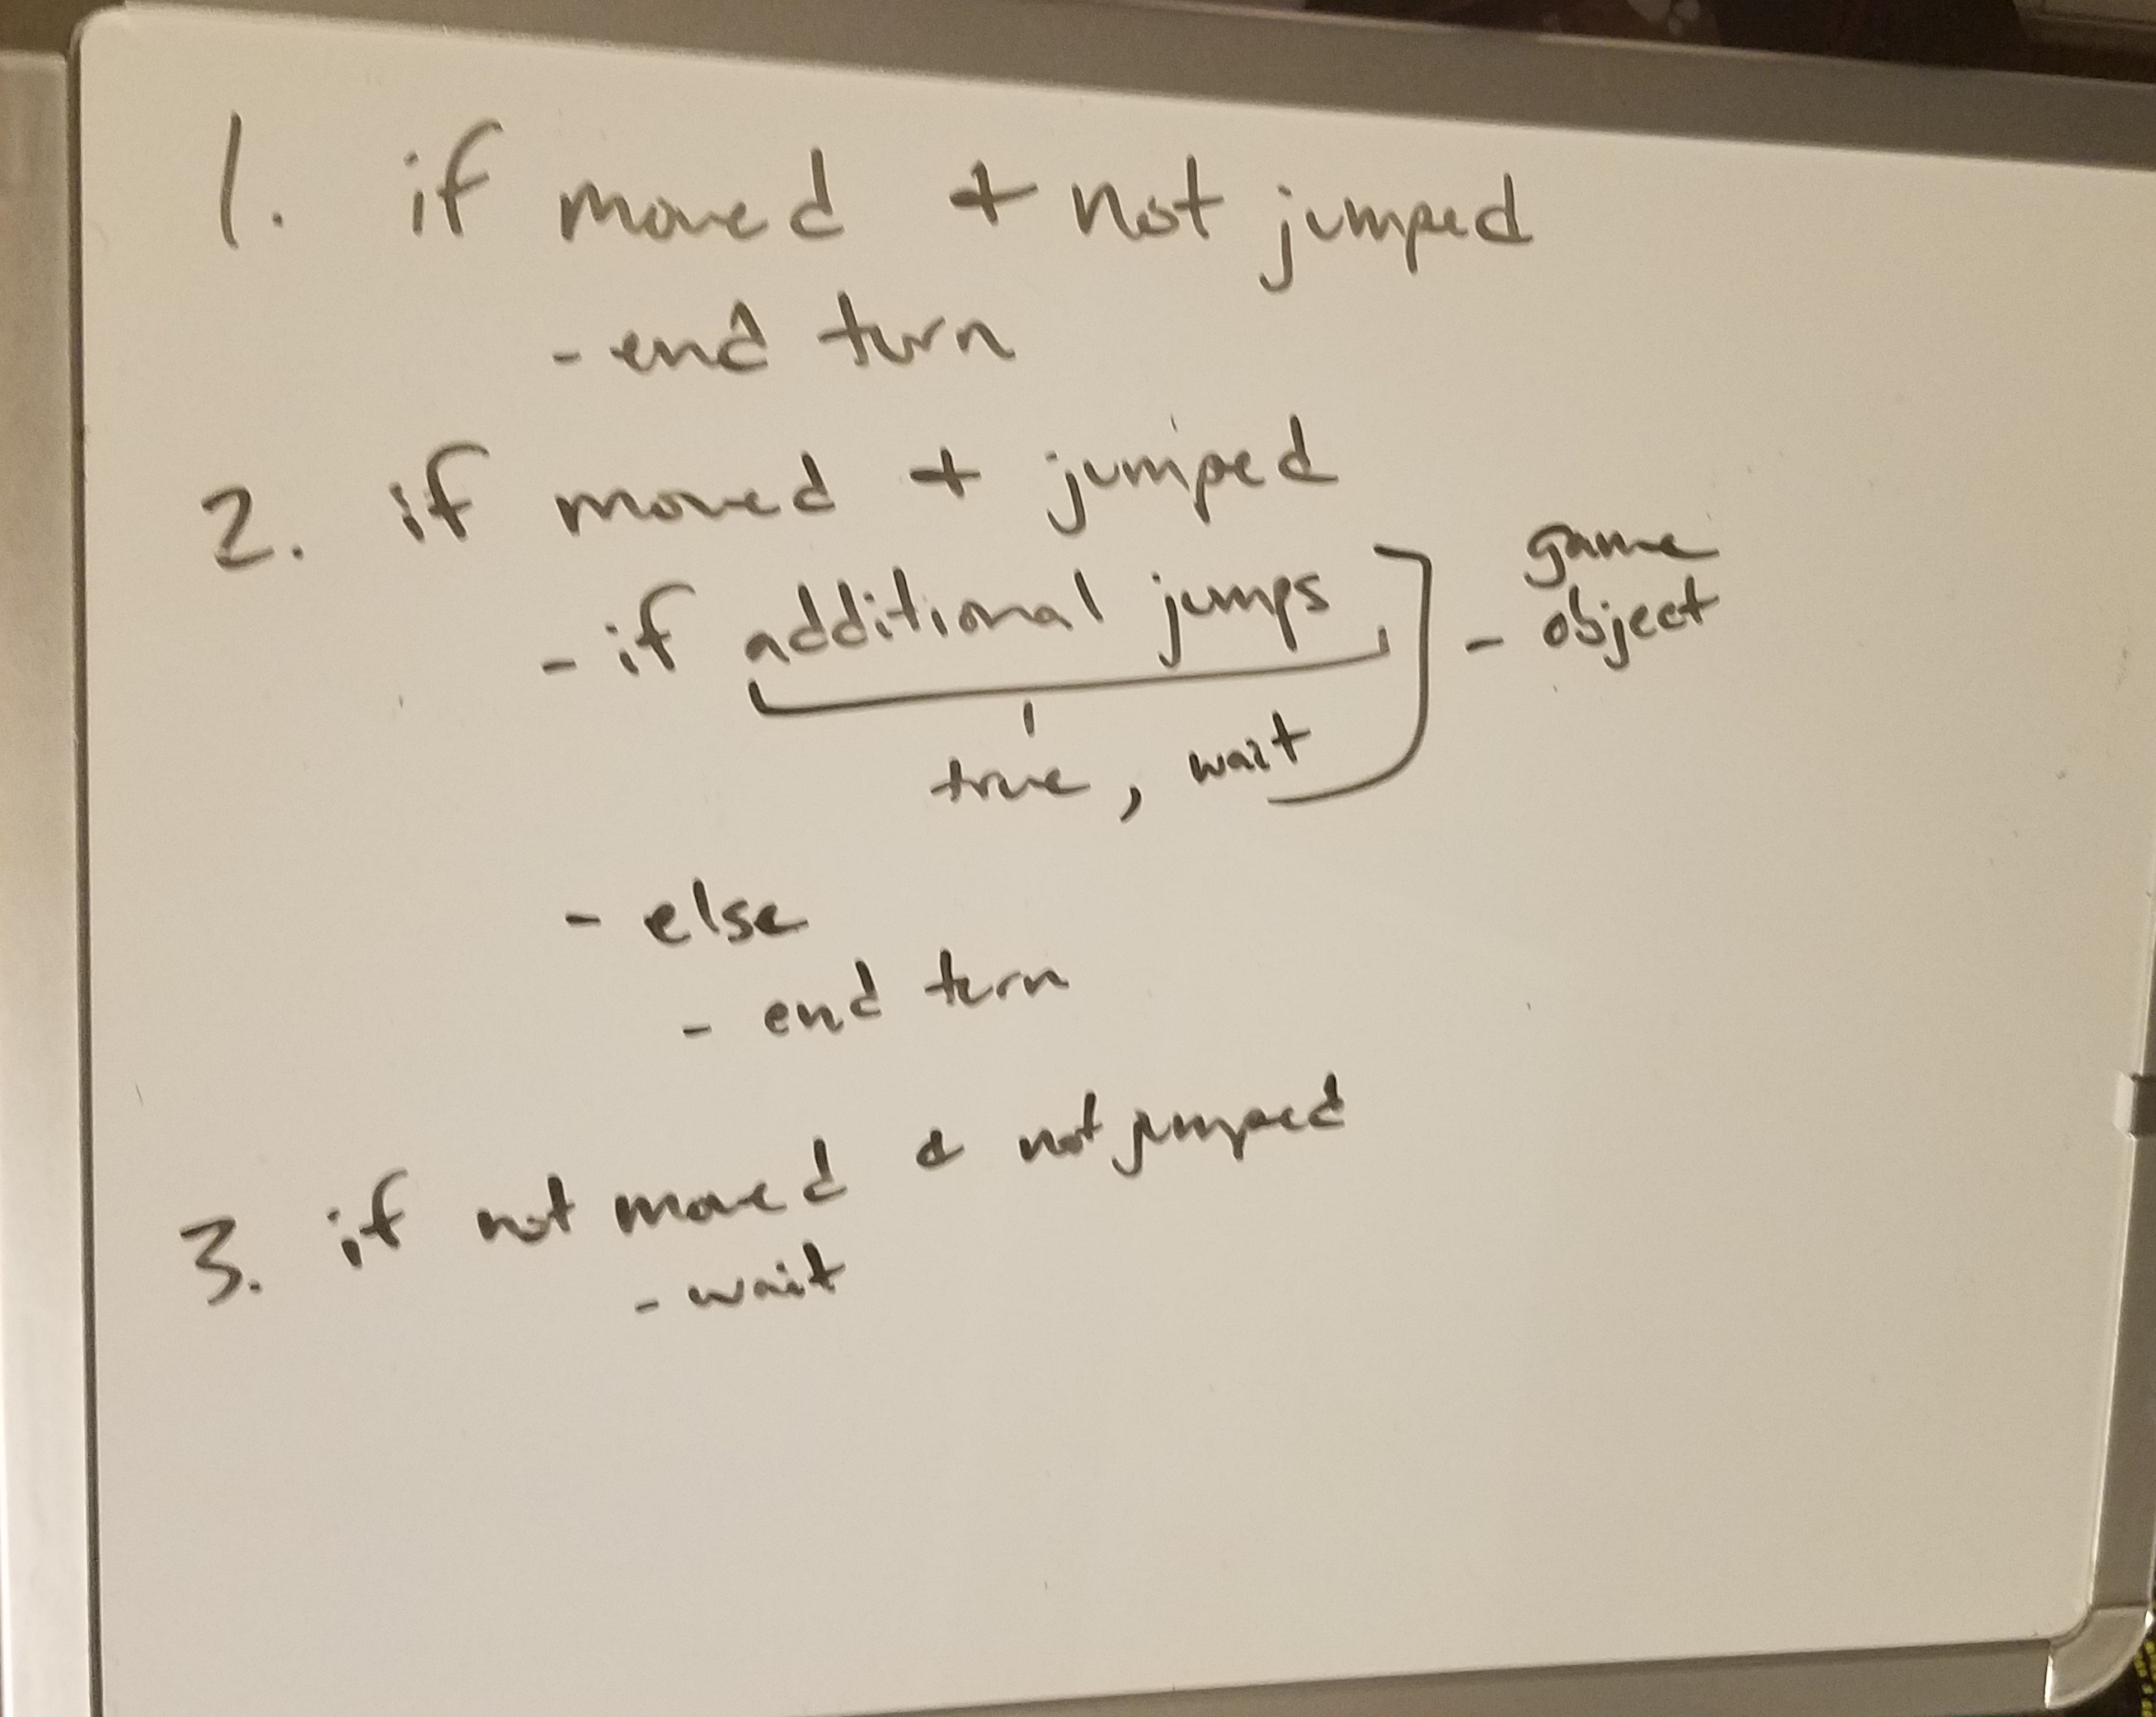 1. if moved + not jumped
- end turn
2. if moved + jumped
- if additional jumps
true, wait
- game
object
- else
- end turn
3. if not moved & not jumped
- wait